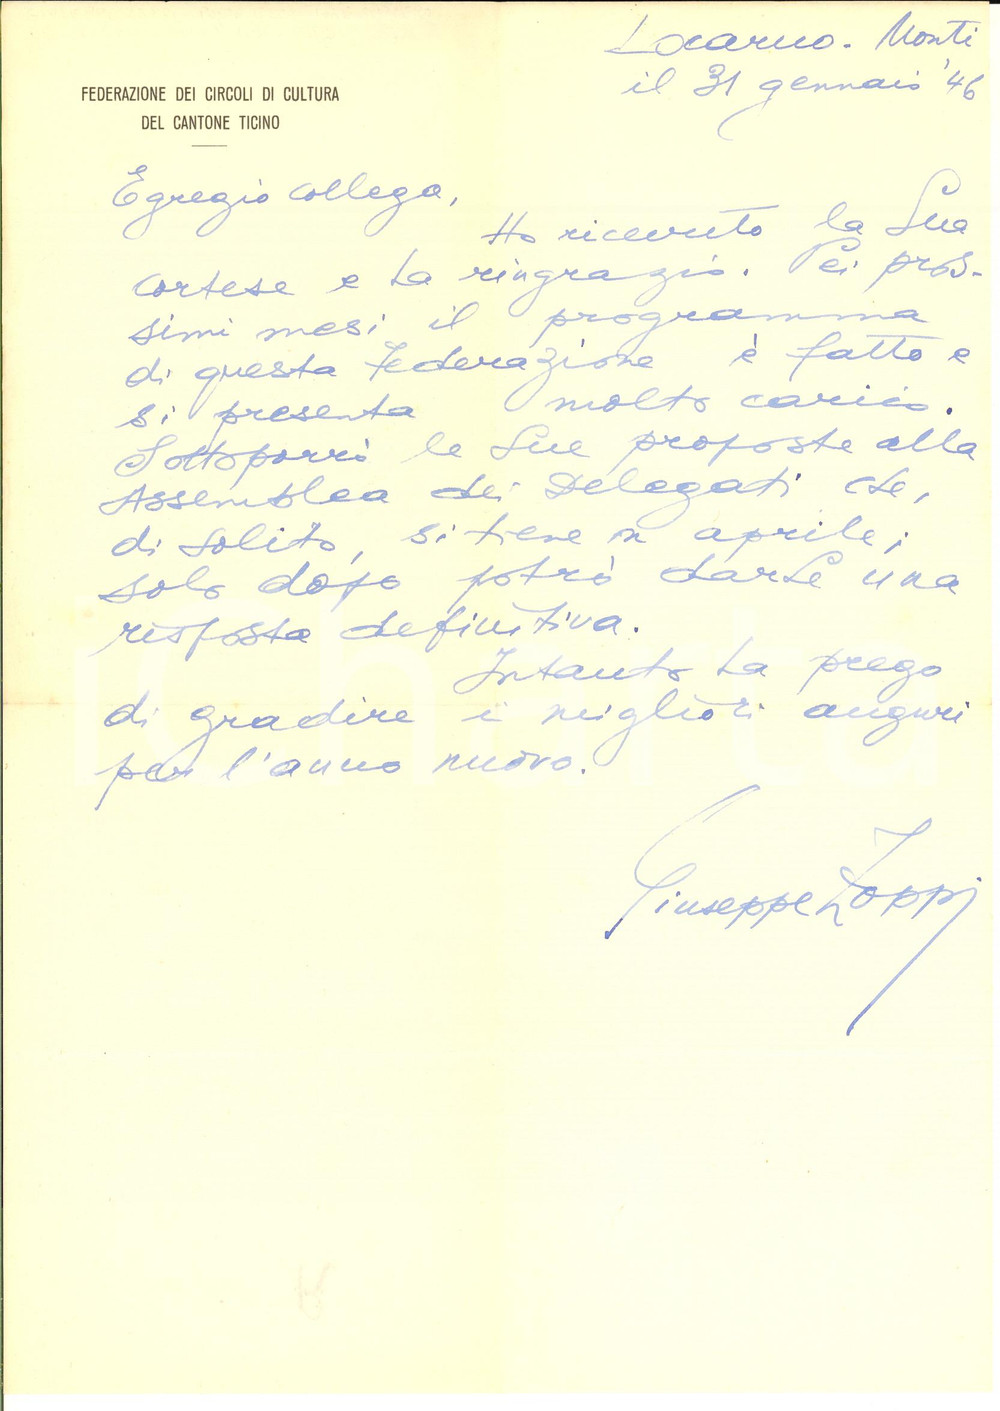 Locarno. Monti
il 31 gennaio '46
FEDERAZIONE DEI CIRCOLI DI CULTURA
DEL CANTONE TICINO
Egregio collega,
Ho ricevuto la Sua
cortese e La ringrazio. Pei pros-
simi mesi il programma
di questa Federazione è fatto e
si presenta molto carico.
Sottoporrò le Sue proposte alla
Assemblea dei Delegati che,
di solito, si tiene in aprile;
solo dopo potrò darLe una
risposta definitiva.
Intanto La prego
di gradire i migliori auguri
per l'anno nuovo.
Giuseppe Zoppi